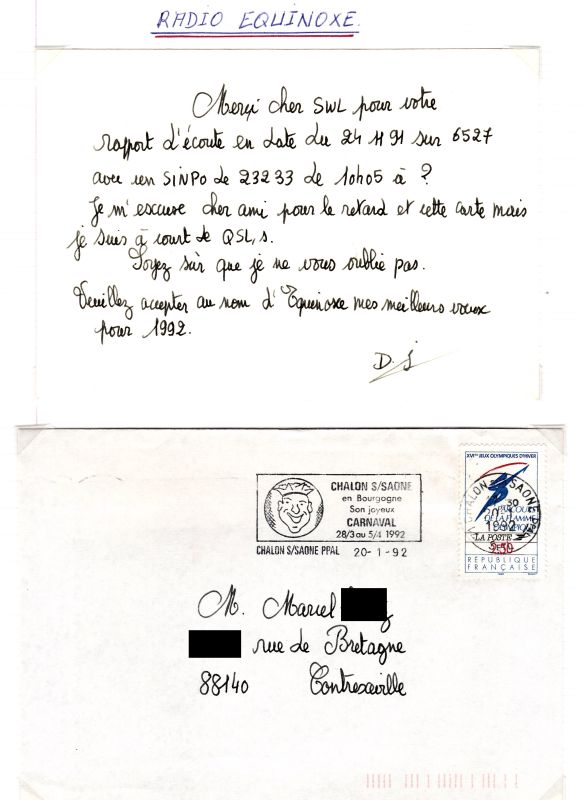 RADIO EQUINOXE.
Merci cher SWL pour votre
rapport d'écoute en date du 24 11 91 sur 6527
avec un SINPO de 23233 de 10h05 à ?
Je m'excuse cher ami pour le retard et cette carte mais
je suis à court de QSL,s.
Soyez sûr que je ne vous oublie pas.
Veuillez accepter au nom d'Equinoxe mes meilleurs voeux
pour 1992.
D. J
CHALON S/SAONE
en Bourgogne
Son joyeux
CARNAVAL
28/3 au 5/4 1992
CHALON S/SAONE PPAL 20-1-92
XVIes JEUX OLYMPIQUES D'HIVER
CHALON S SAONE PPAL
1992
PARCOURS
DE LA FLAMME
OLYMPIQUE
LA POSTE
2,50
REPUBLIQUE
FRANÇAISE
M. Marcel
rue de Bretagne
88140 Contrexeville